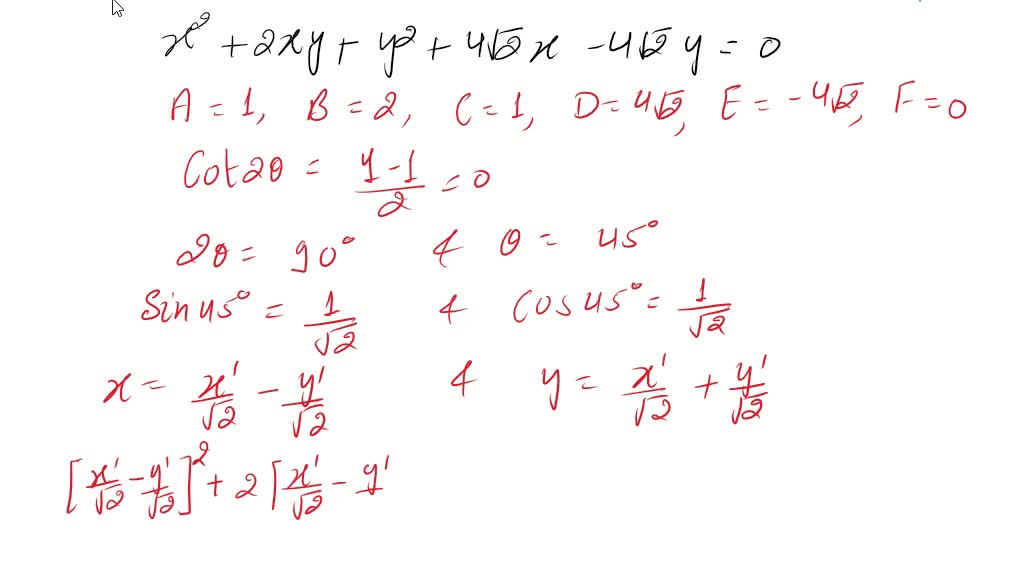 x² + 2xy + y² + 4√2 x - 4√2 y = 0
A = 1, B = 2, C = 1, D = 4√2, E = -4√2, F = 0
Cot2θ = (1 - 1)/2 = 0
2θ = 90° & θ = 45°
Sin45° = 1/√2 & Cos45° = 1/√2
x = x'/√2 - y'/√2 & y = x'/√2 + y'/√2
[x'/√2 - y'/√2]² + 2[x'/√2 - y'